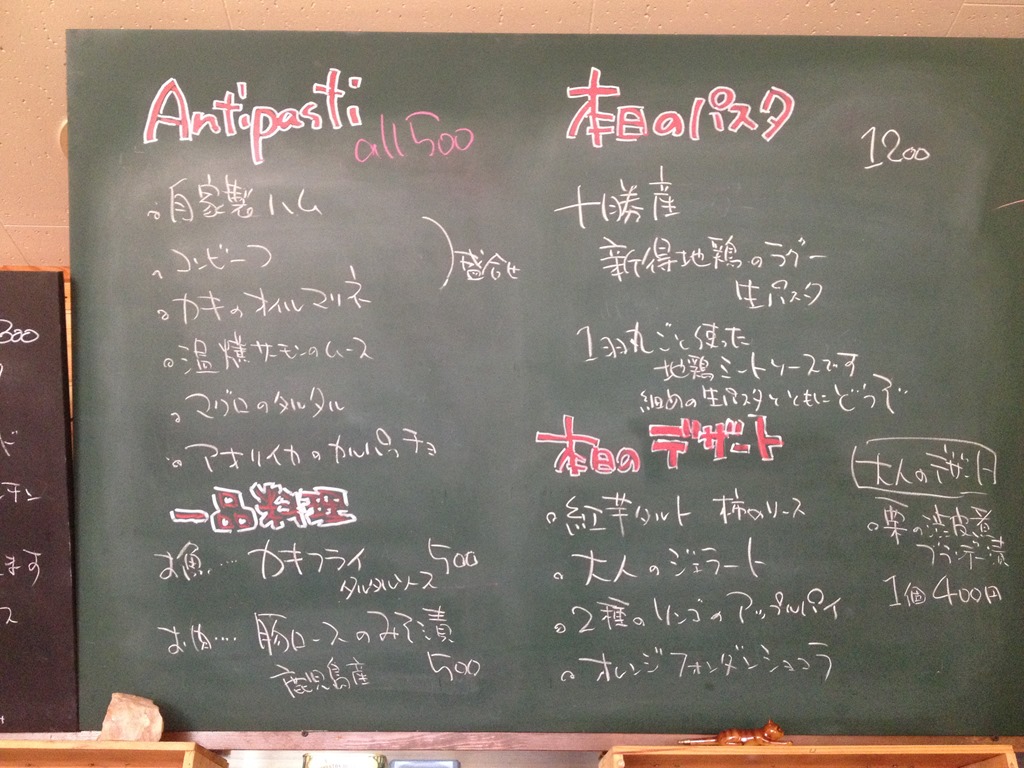 Antipasti
all 500
。自家製ハム
、コンビーフ
盛合せ
。カキのオイルマリネ
。温燻サーモンのムース
。マグロのタルタル
。アオリイカのカルパッチョ
一品料理
お魚…. カキフライ 500
タルタルソース
お肉…. 豚ロースのみそ漬
鹿児島産 500
本日のパスタ
1200
十勝産
新得地鶏のラグー
生パスタ
1羽丸ごと使った
地鶏ミートソースです
細めの生パスタとともにどうぞ
本日のデザート
。紅芋タルト 柿のソース
。大人のジェラート
。2種のリンゴのアップルパイ
。オレンジフォンダンショコラ
大人のデザート
。栗の渋皮煮
ブランデー漬
1個400円
300
ド
チン
ます
ス